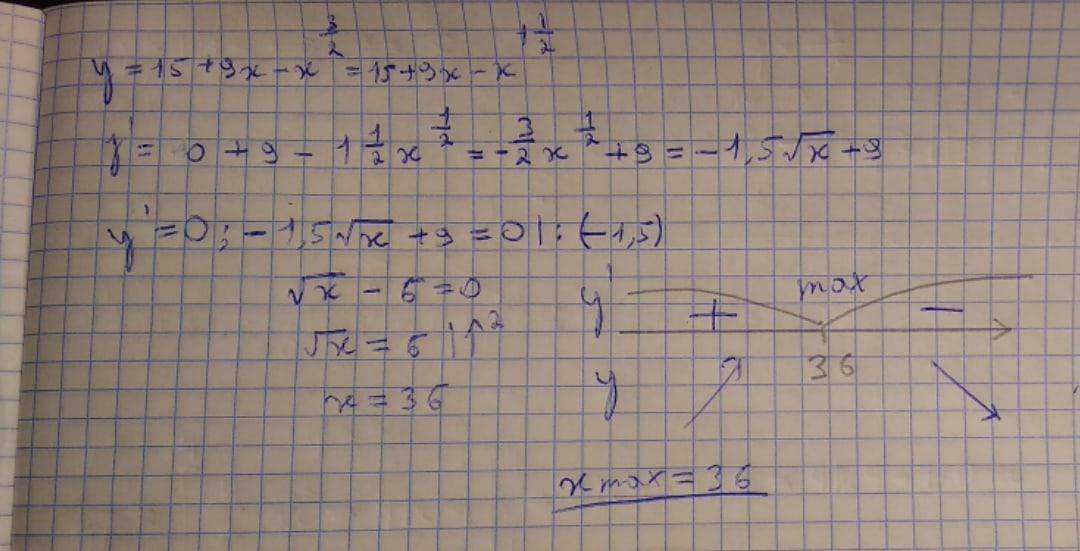 y = 15 + 9x - x^(3/2) = 15 + 9x - x^(1 1/2)
y' = 0 + 9 - 1 1/2 x^(1/2) = -3/2 x^(1/2) + 9 = -1,5√x + 9
y' = 0; -1,5√x + 9 = 0 | : (-1,5)
√x - 6 = 0
√x = 6 | ↑²
x = 36
y' + max -
36
y
x max = 36